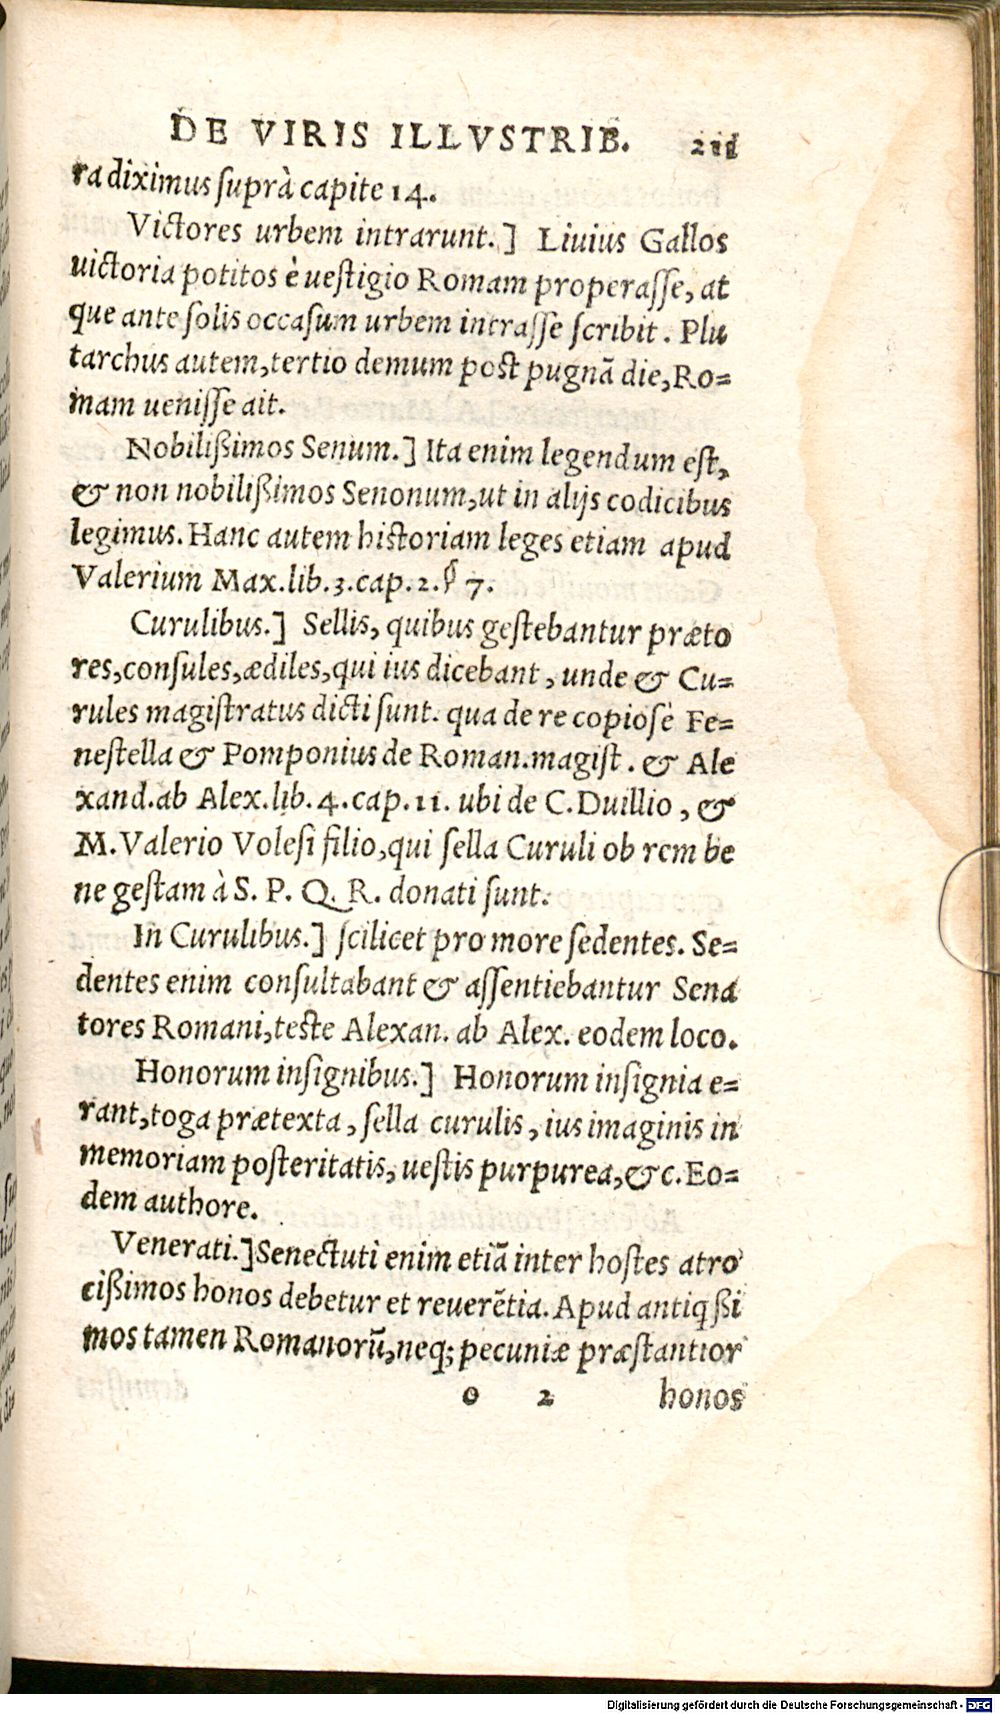 DE VIRIS ILLVSTRIB. 211
ra diximus suprà capite 14.
Victores urbem intrarunt.] Liuius Gallos
uictoria potitos è uestigio Romam properasse, at
que ante solis occasum urbem intrasse scribit. Plu
tarchus autem, tertio demum post pugnã die, Ro=
mam uenisse ait.
Nobilißimos Senum.] Ita enim legendum est,
& non nobilißimos Senonum, ut in alijs codicibus
legimus. Hanc autem historiam leges etiam apud
Valerium Max. lib. 3. cap. 2. § 7.
Curulibus.] Sellis, quibus gestebantur præto
res, consules, ædiles, qui ius dicebant, unde & Cu=
rules magistratus dicti sunt. qua de re copiosè Fe=
nestella & Pomponius de Roman. magist. & Ale
xand. ab Alex. lib. 4. cap. 11. ubi de C. Duillio, &
M. Valerio Volesi filio, qui sella Curuli ob rem be
ne gestam à S. P. Q. R. donati sunt.
In Curulibus.] scilicet pro more sedentes. Se=
dentes enim consultabant & assentiebantur Sena
tores Romani, teste Alexan. ab Alex. eodem loco.
Honorum insignibus.] Honorum insignia e=
rant, toga prætexta, sella curulis, ius imaginis in
memoriam posteritatis, uestis purpurea, &c. Eo=
dem authore.
Venerati.] Senectuti enim etiã inter hostes atro
cißimos honos debetur et reuerẽtia. Apud antiq ßi
mos tamen Romanorũ, neq; pecuniæ præstantior
o 2 honos
Digitalisierung gefördert durch die Deutsche Forschungsgemeinschaft - DFG